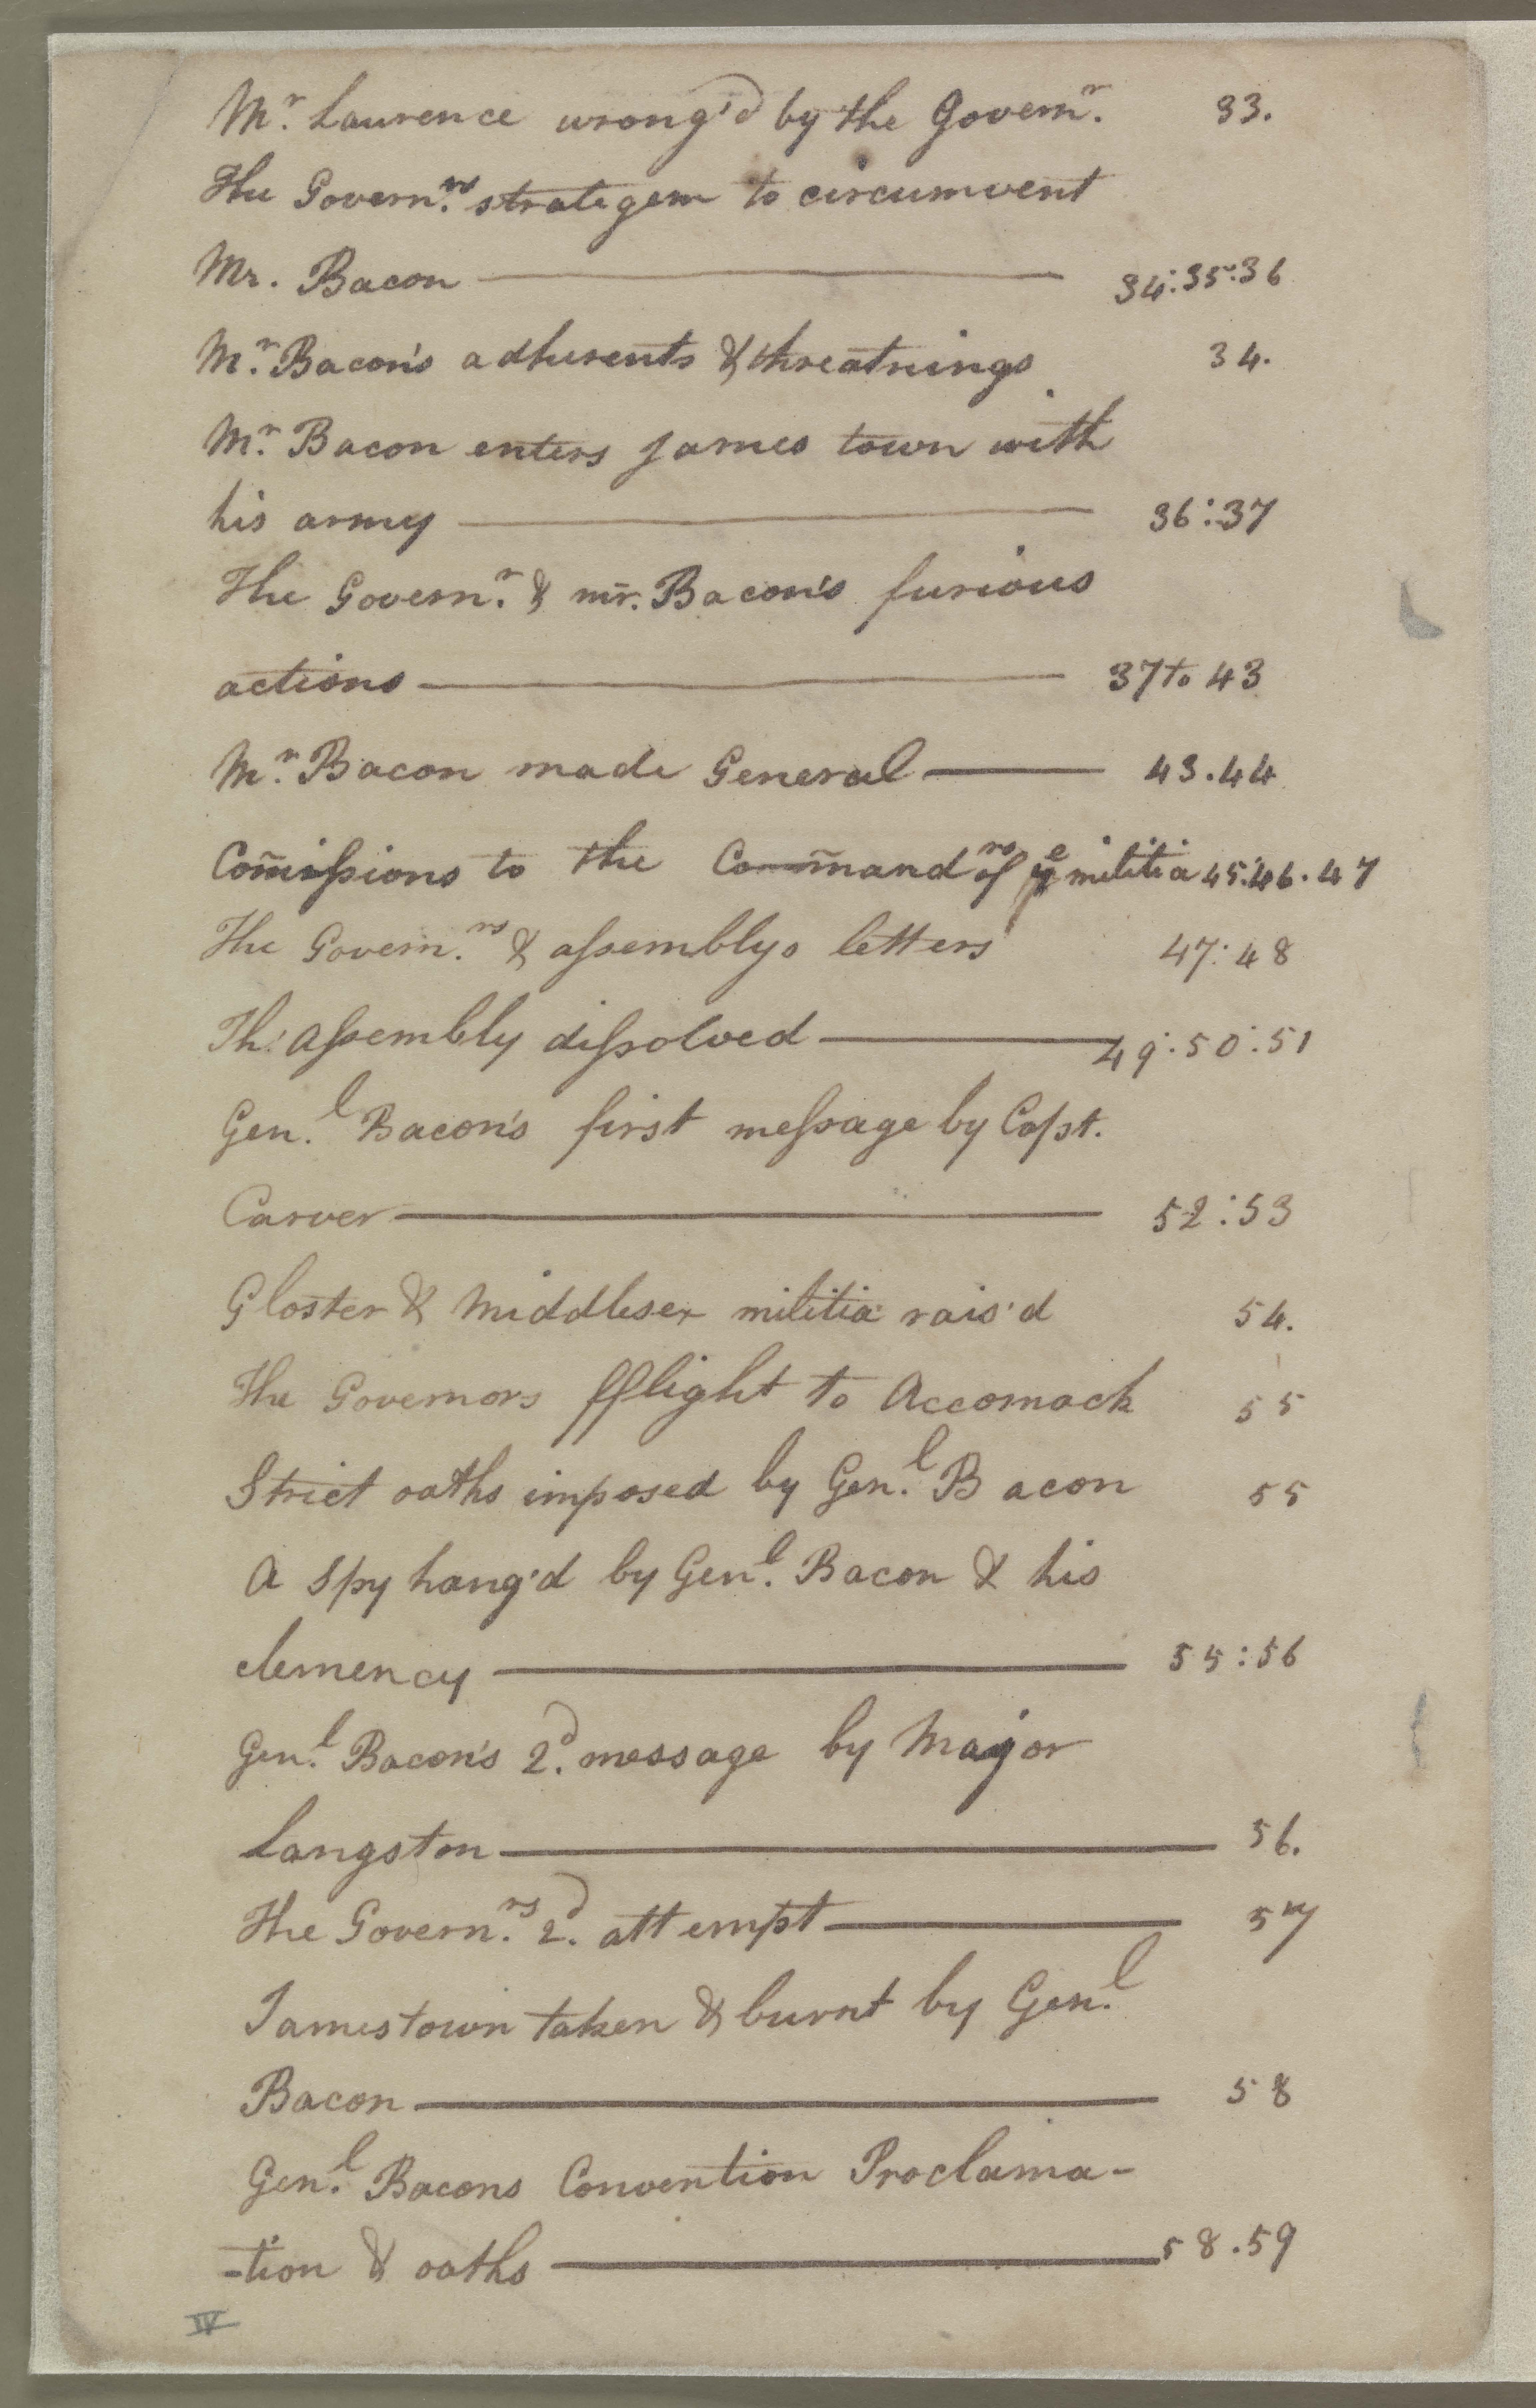 Mr. Laurence wrong'd by the Governr. 33.
The Governrs. strategem to circumvent
Mr. Bacon — 34:35:36
Mr. Bacon's adherents & threatnings 34.
Mr. Bacon enters James town with
his army — 36:37
The Governr. & mr. Bacon's furious
actions — 37 to 43
Mr. Bacon made General — 43.44
Com̃issions to the Com̃andrs of ye militia 45:46.47
The Governrs. & assemblys letters 47:48
Th: Assembly dissolved — 49:50:51
Genl. Bacon's first message by Capt.
Carver — 52:53
Gloster & Middlesex militia rais'd 54.
The Governors fflight to Accomack 55
Strict oaths imposed by Genl. Bacon 55
A Spy hang'd by Genl. Bacon & his
clemency — 55:56
Genl. Bacon's 2d. message by Major
Langston — 56.
The Governrs. 2d. attempt — 57
Jamestown taken & burnt by Genl.
Bacon — 58
Genl. Bacons Convention Proclama-
-tion & oaths — 58.59
IV